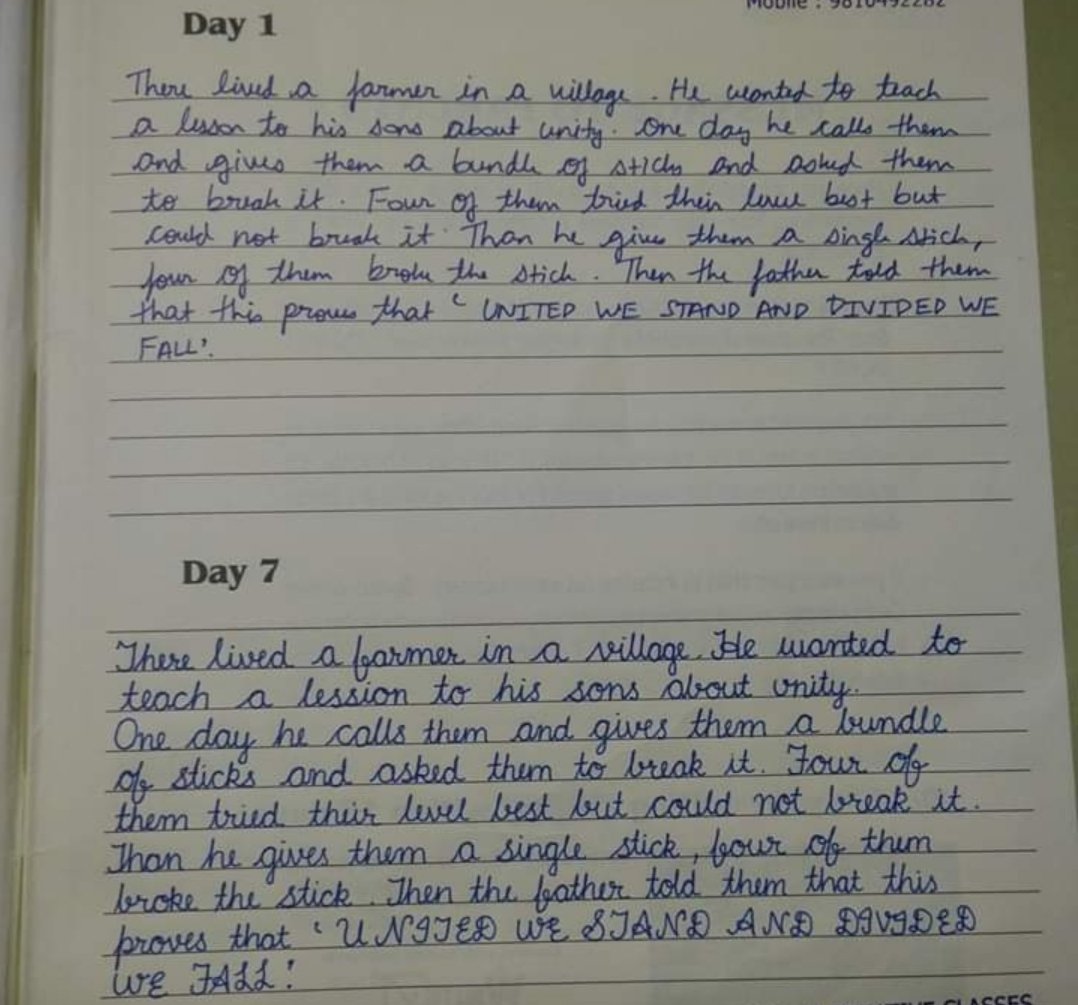 Day 1
There lived a farmer in a village. He wanted to teach
a lesson to his sons about unity. One day he calls them
and gives them a bundle of sticks and asked them
to break it. Four of them tried their level best but
could not break it. Than he gives them a single stick,
four of them broke the stick. Then the father told them
that this proves that 'UNITED WE STAND AND DIVIDED WE
FALL'.
Day 7
There lived a farmer in a village. He wanted to
teach a lession to his sons about unity.
One day he calls them and gives them a bundle
of sticks and asked them to break it. Four of
them tried their level best but could not break it.
Than he gives them a single stick, four of them
broke the stick. Then the father told them that this
proves that 'UNITED WE STAND AND DIVIDED
WE FALL'.
CLASSES